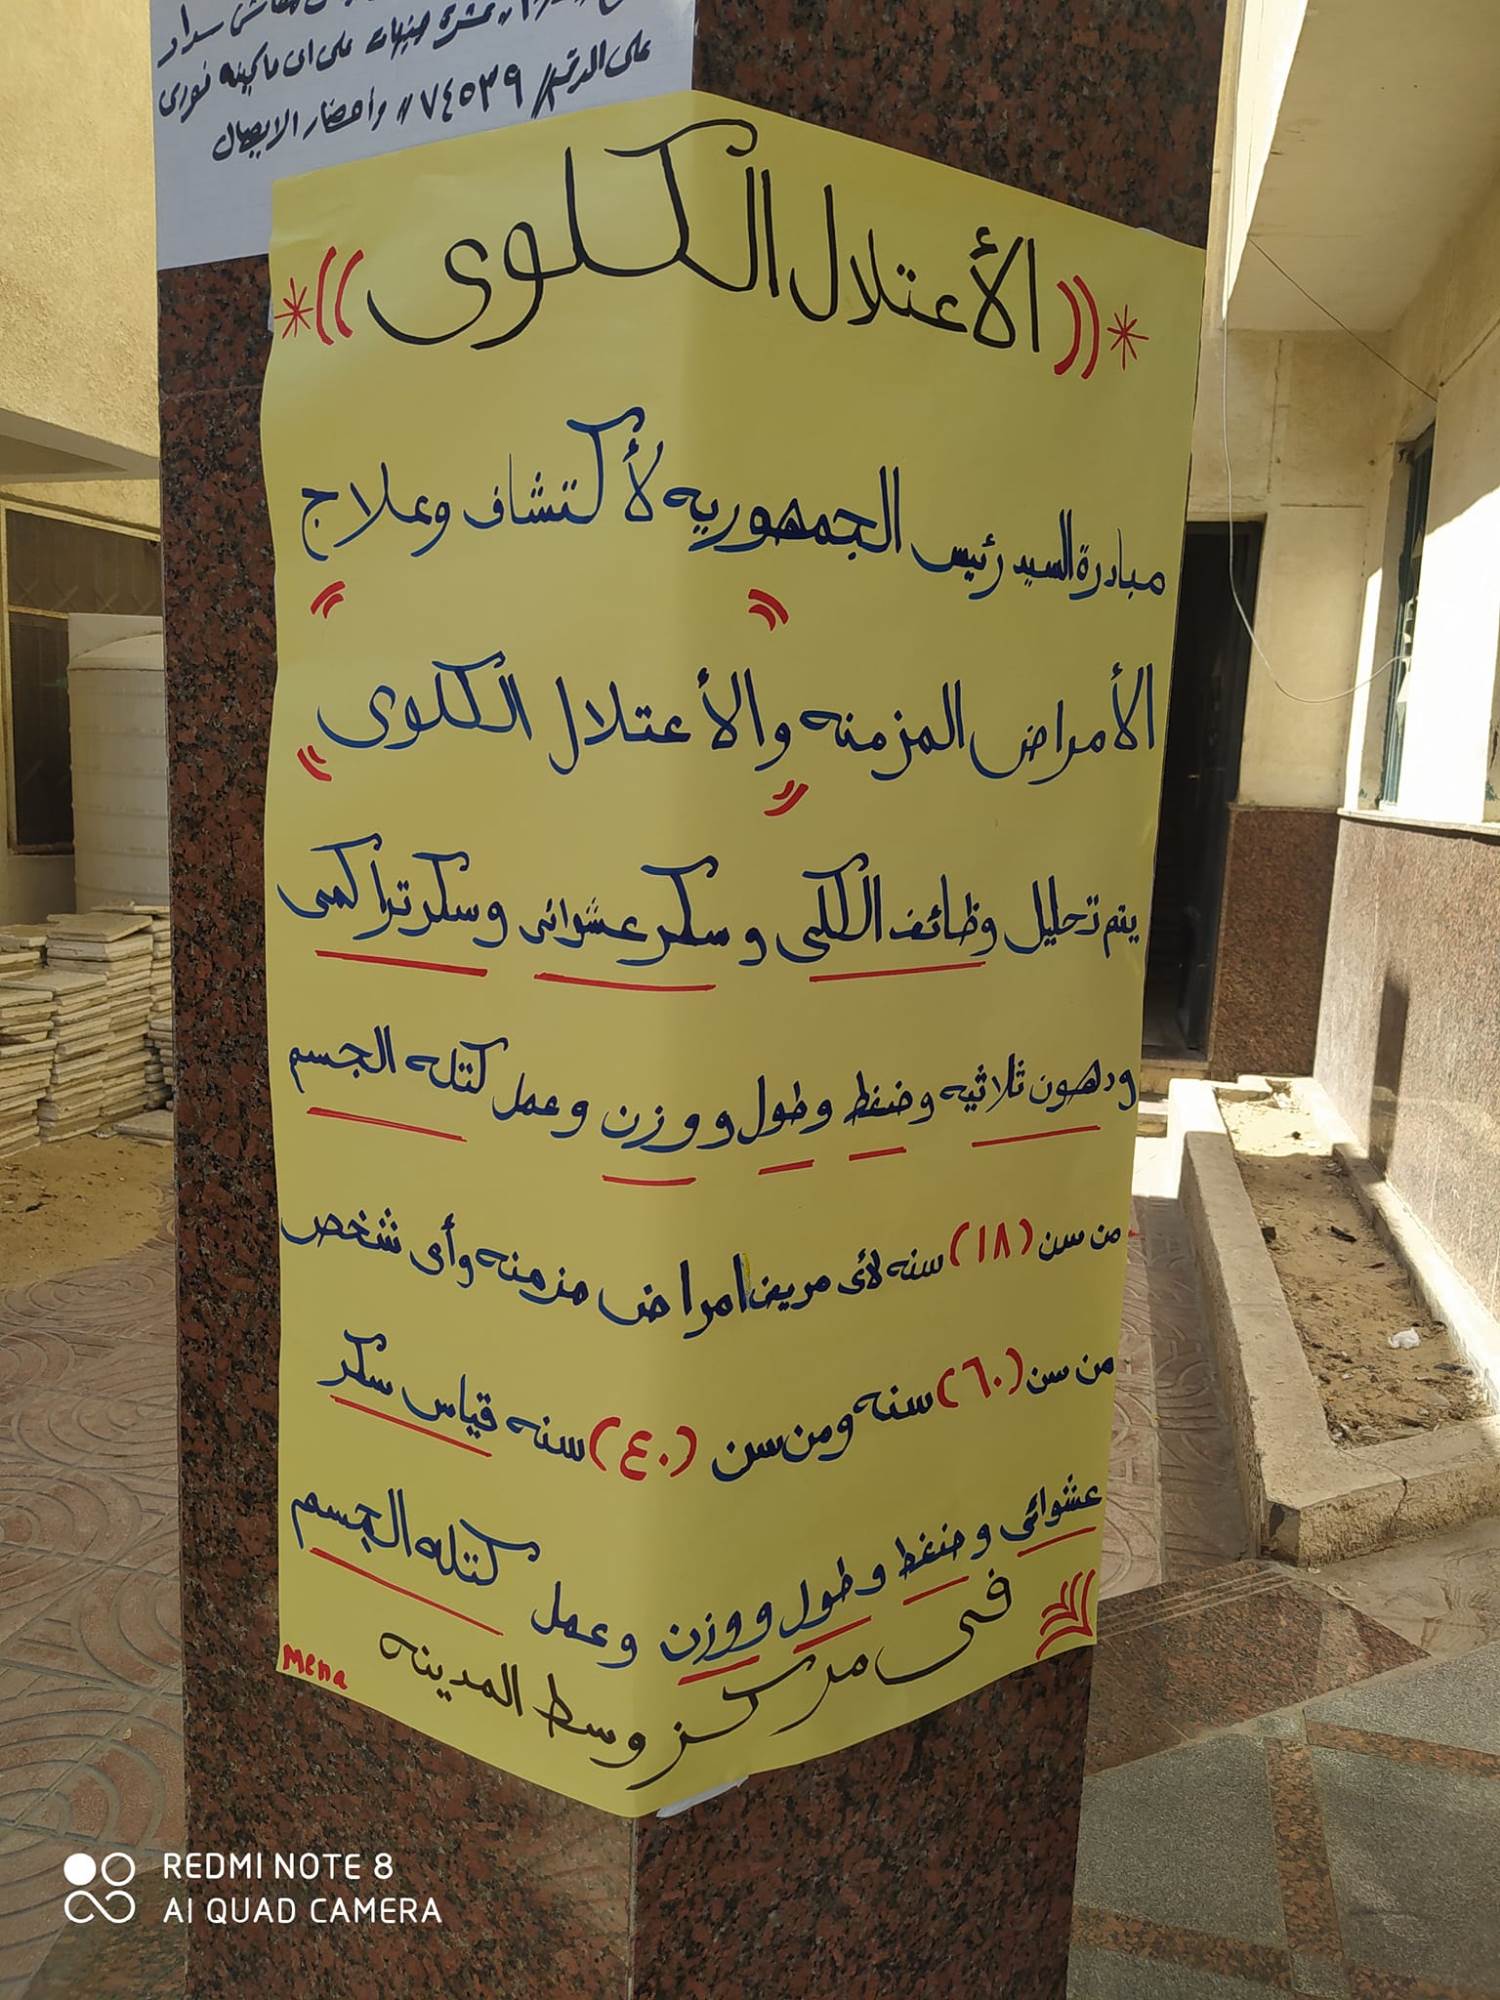 سداد
عشرة جنيهات على اى ماكينه فورى
على الرقم // ٧٤٥٣٩ // واحضار الايصال
*((الأعتلال الكلوى))*
مبادرة السيد رئيس الجمهوريه لأكتشاف وعلاج
الأمراض المزمنه والأعتلال الكلوى
يتم تحليل وظائف الكلى وسكر عشوائى وسكر تراكمى
ودهون ثلاثيه وضغط وطول ووزن وعمل كتله الجسم
من سن (١٨) سنه لأى مريض امراض مزمنه وأى شخص
من سن (٦٠) سنه ومن سن (٤٠) سنه قياس سكر
عشوائى وضغط وطول ووزن وعمل كتله الجسم
فى مركز وسط المدينه
Mena
REDMI NOTE 8
AI QUAD CAMERA